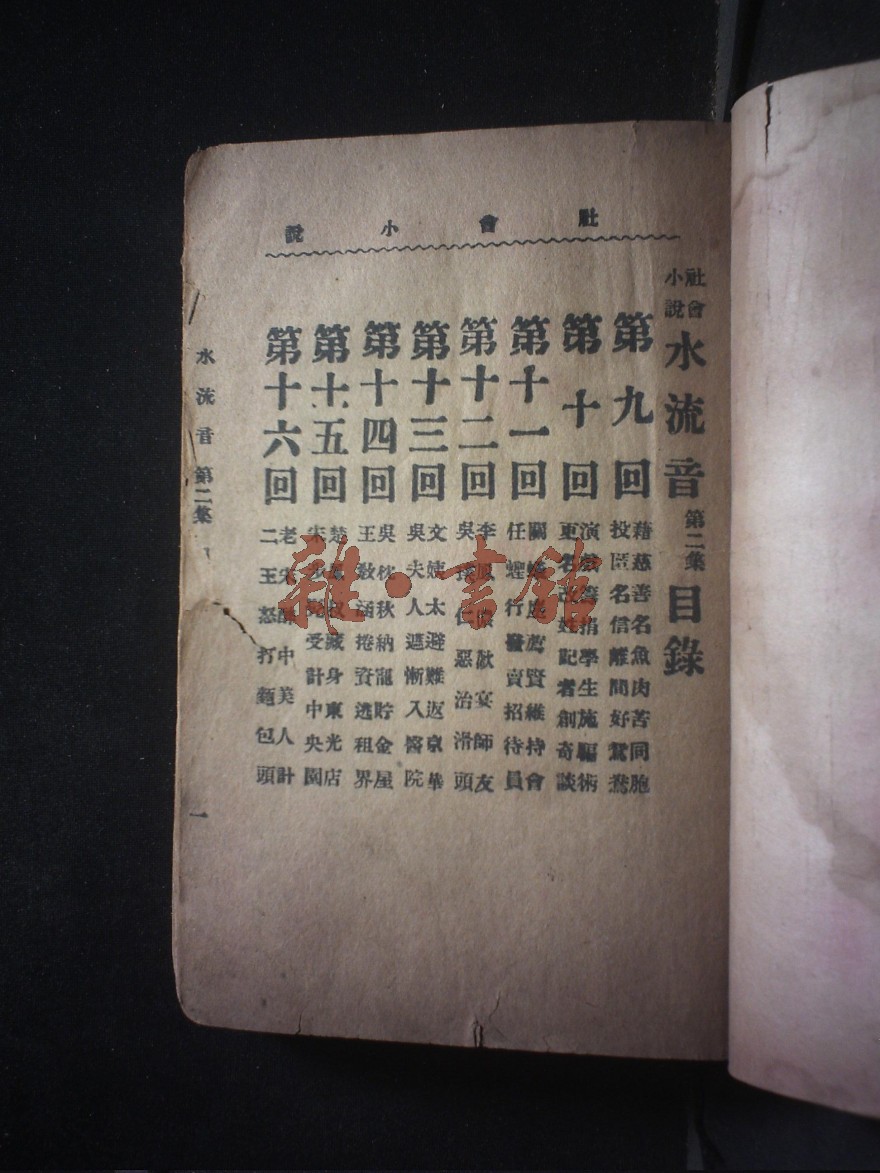 社會小說
社會小說 水流音 第二集 目錄
第九回 藉慈善名魚肉苦同胞
投匿名信離間好鴛鴦
第十回 演 捐學生施騙術
更名改姓記者創奇談
第十一回 薦賢維持會
任 行 賣招待員
第十二回 李鳳 宴師友
吳 仁惡治滑頭
第十三回 文姨太避難返京華
吳夫人遮慚入醫院
第十四回 吳枕秋納寵貯金屋
王敦涵捲資逃租界
第十五回 楚 藏身東光店
宋 受計中央園
第十六回 老宋 中美人計
二王怒打麵包頭
水流音 第二集
一
雜·書館